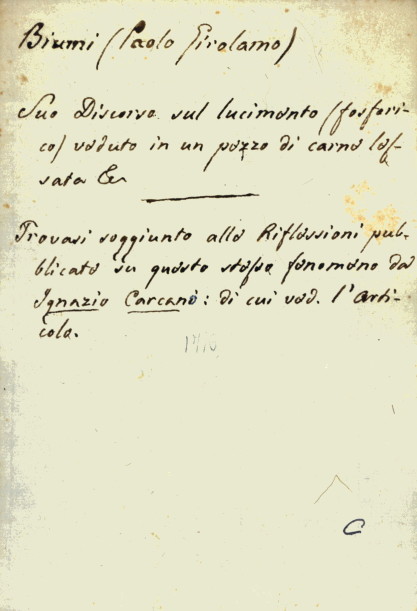 Biumi (Paolo Girolamo)
Suo Discorso sul lucimento (fosfori-
co) veduto in un pezzo di carne les-
sata &c
Trovasi soggiunto alle Riflessioni pub-
blicate su questo stesso fenomeno da
Ignazio Carcano: di cui ved. l'Arti-
colo.
C